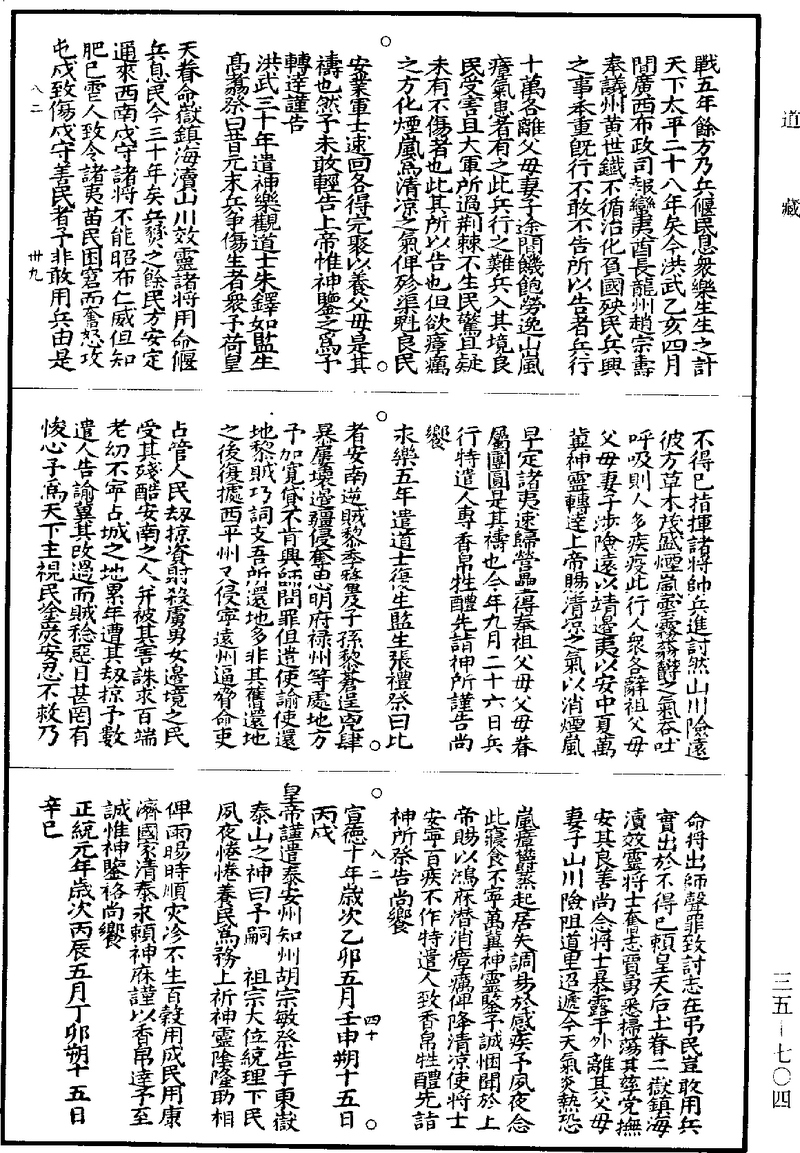 道藏
戰五年餘方乃兵偃民息衆樂生生之計
天下太平二十八年矣今洪武乙亥四月
間廣西布政司報蠻夷酋長龍州趙宗壽
奉議州黃世鐵不循治化負國殃民兵興
之事本重旣行不敢不告所以告者兵行
十萬各離父母妻子途間饑飽勞逸山嵐
瘴氣患者有之此兵行之難兵入其境良
民受害且大軍所過荆棘不生民驚且疑
未有不傷者也此其所以告也但欲瘴癘
之方化煙嵐爲清凉之氣俾殄渠魁良民
安業軍士速回各得完聚以養父母是其
禱也然予未敢輕告上帝惟神鑒之爲予
轉達謹告
洪武三十年遣神樂觀道士朱鐸如監生
高翥祭曰昔元末兵爭傷生者衆予荷皇
天眷命嶽鎮海瀆山川效靈諸將用命偃
兵息民今三十年矣兵燹之餘民方安定
通來西南戍守諸將不能昭布仁威但知
肥已虐人致令諸夷苗民困窘而奮怒攻
屯戍致傷戍守善民者予非敢用兵由是
八二
卅九
不得已指揮諸將帥兵進討然山川險遠
彼方草木茂盛煙嵐雲霧蓊鬱之氣吞吐
呼吸則人多疾疫此行人衆各辭祖父母
父母妻子涉險遠以靖邊夷以安中夏萬
冀神靈轉達上帝賜清凉之氣以消煙嵐
早定諸夷速歸營壘得奉祖父母父母眷
屬團圓是其禱也今年九月二十六日兵
行特遣人專香帛牲醴先詣神所謹告尚
饗
永樂五年遣道士復生監生張禮祭曰比
者安南逆賊黎季犛曁子孫黎蒼逞兇肆
暴屢壞邊疆侵奪思明府祿州等處地方
予加寬貸不肯興師問罪但遣使諭使還
地黎賊巧詞支吾所還地多非其舊還地
之後復據西平州又侵寧遠州逼脅命吏
占管人民刼掠資財殺虜男女邊境之民
受其殘酷安南之人并被其害誅求百端
老幼不寧占城之地累年遭其刼掠予數
遣人告諭冀其改過而賊稔惡日甚罔有
悛心予爲天下主視民塗炭安忍不救乃
命將出師聲罪致討志在弔民豈敢用兵
實出於不得已賴皇天后土眷二嶽鎮海
瀆效靈將士奮志賈勇悉掃蕩其孽党撫
安其良善尚念將士暴露于外離其父母
妻子山川險阻道里迢遞今天氣炎熱恐
嵐瘴鬱蒸起居失調易於感疾予夙夜念
此寢食不寧萬冀神靈鑒予誠悃聞於上
帝賜以鴻庥潜消瘴癘俾降清凉使將士
安寧百疾不作特遣人致香帛牲醴先詣
神所祭告尚饗
宣德十年歲次乙卯五月壬申朔十五日
八二
四十
丙戌
皇帝謹遣泰安州知州胡宗敏祭告于東嶽
泰山之神曰予嗣 祖宗大位統理下民
夙夜惓惓養民爲務上祈神靈陰隆助相
俾雨暘時順灾沴不生百穀用成民用康
濟國家清泰永賴神庥謹以香帛達予至
誠惟神鑒格尚饗
正統元年歲次丙辰五月丁卯朔十五日
辛巳
三五—七〇四